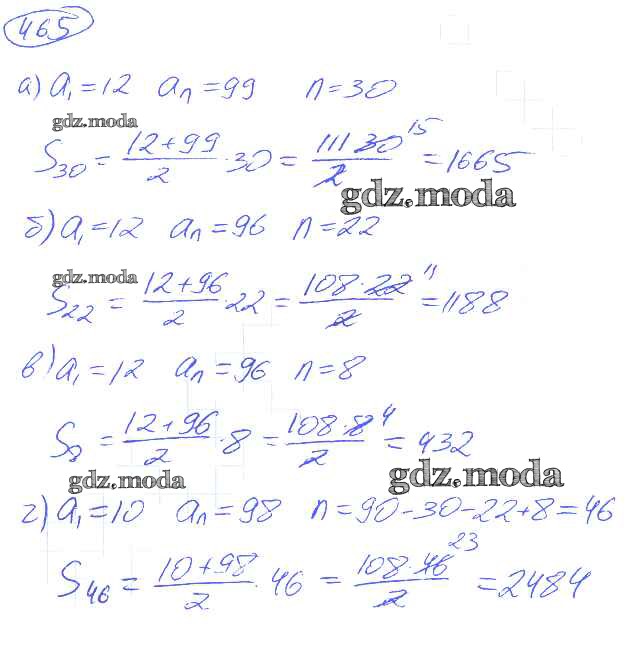 465
а) a₁ = 12 aₙ = 99 n = 30
gdz.moda
S₃₀ = (12+99)/2 · 30 = (111 30)/2 15 = 1665
gdz.moda
б) a₁ = 12 aₙ = 96 n = 22
gdz.moda
S₂₂ = (12+96)/2 · 22 = (108·22)/2 11 = 1188
в) a₁ = 12 aₙ = 96 n = 8
S₈ = (12+96)/2 · 8 = (108·8)/2 4 = 432
gdz.moda gdz.moda
г) a₁ = 10 aₙ = 98 n = 90-30-22+8 = 46
S₄₆ = (10+98)/2 · 46 = (108·46)/2 23 = 2484